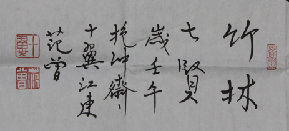 竹林
七賢
歲壬午
抱沖齋
十翼江東
范曾